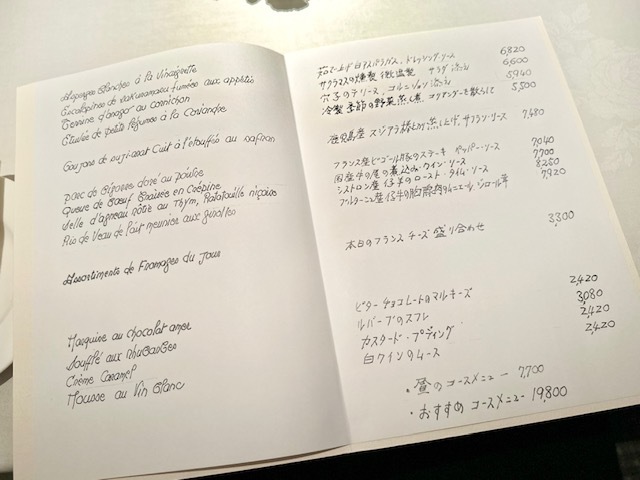 Asperges Blanches à la Vinaigrette
Escalopines de sakuramasu fumées aux appétis
Terrine d'anago au cornichon
Etuvée de petits légumes à la Coriandre
Goujons de suji-ara Cuit à l'étouffée au safran
porc de Bigorre doré au poivre
Queue de Bœuf Braisée en Crépine
Selle d'agneau rôtie au Thym, Ratatouille niçoise
Ris de Veau de lait meunier aux girolles
Assortiments de Fromages du Jour
Marquise au chocolat amer
Soufflé aux Rhubarbes
Crème Caramel
Mousse au Vin Blanc
茹で上げ白アスパラガス、ドレッシング・ソース 6,820
サクラマスの燻製 サラダ添え 6,600
穴子のテリーヌ、コルニッション添え 5940
冷製 季節の野菜蒸し煮 コリアンダーを散らして 5,500
鹿児島産 スジアラ 蒸し上げ、サフラン・ソース 7,480
フランス産ビゴール豚のステーキ ペッパー・ソース 7040
国産牛の尾の煮込み・ワイン・ソース 7700
シストロン産 仔羊のロースト・タイム・ソース 8250
ブルターニュ産仔牛の胸腺肉のムニエル、ジロール茸 7,920
本日のフランスチーズ盛り合わせ 3,300
ビターチョコレートのマルキーズ 2,420
ルバーブのスフレ 3,080
カスタード・プディング 2,420
白ワインのムース 2,420
・昼のコースメニュー 7,700
・おすすめ コースメニュー 19800